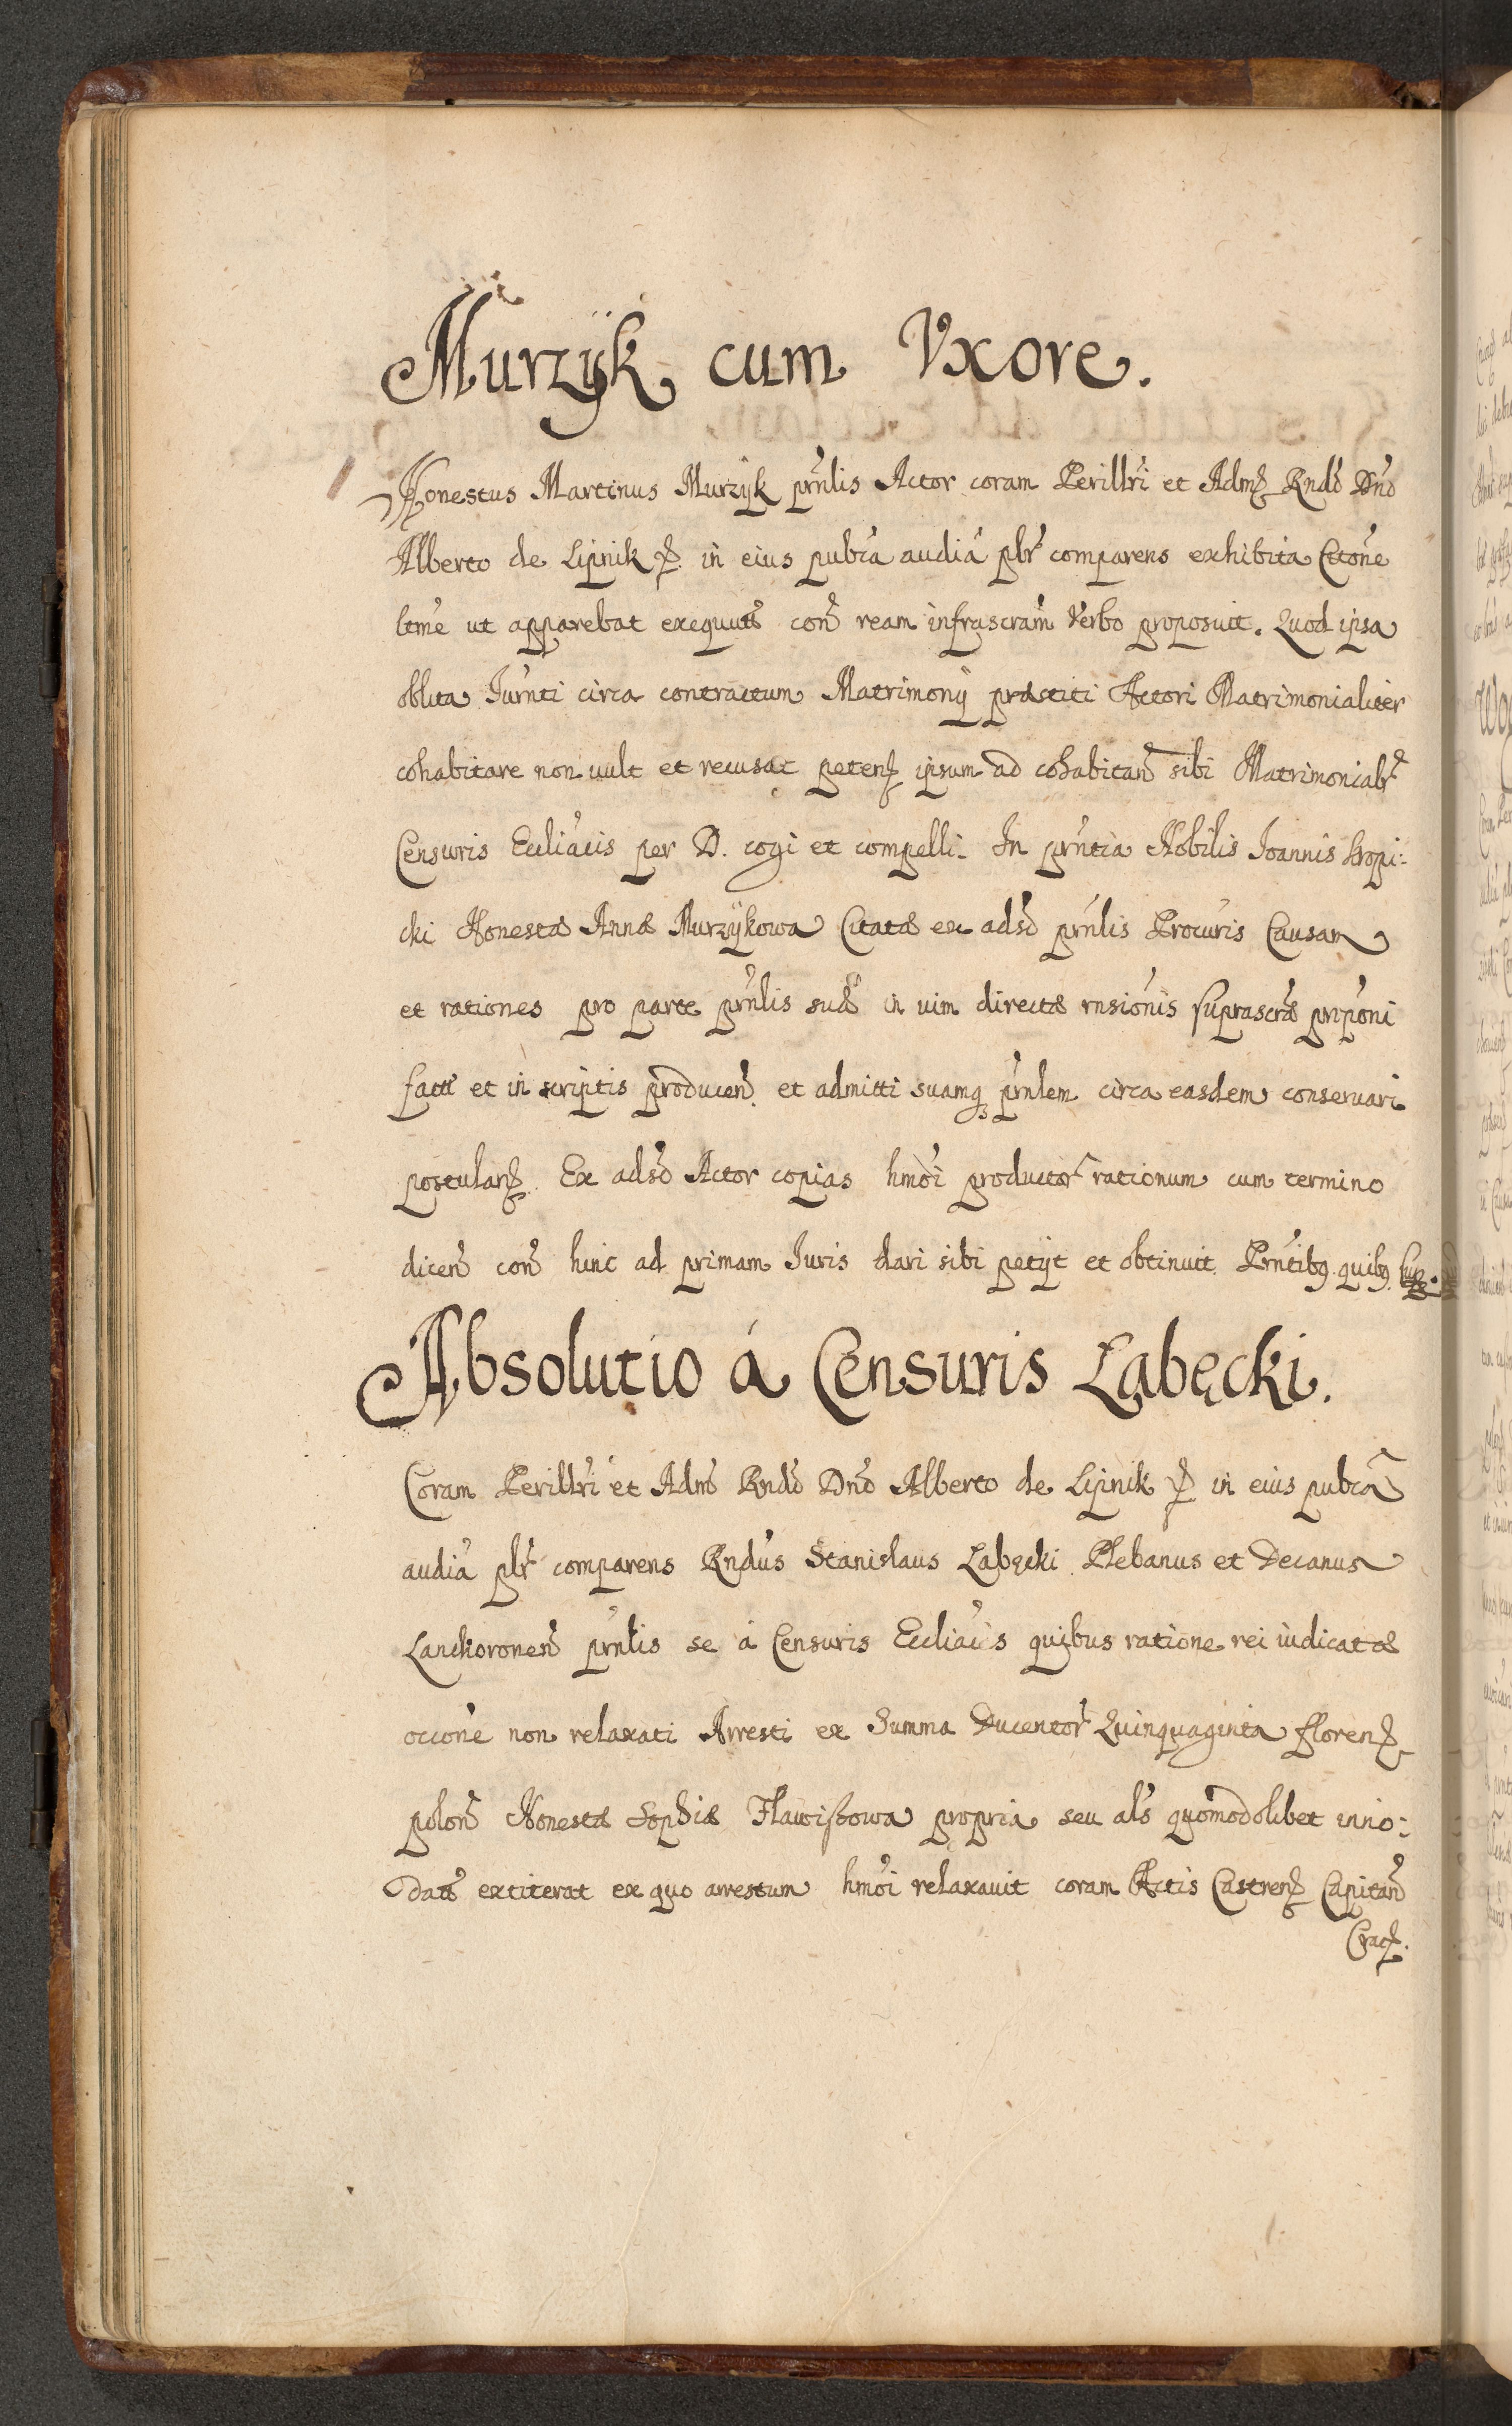 Murzÿk cum Vxore.
Honestus Martinus Murzÿk prńlis Actor coram Perillri et Adm Rndo Dno
Alberto de Lipnik in eius pubca audia plr comparens exhibita Citone
ltme ut apparebat exequuta con ream infrascram Verbo proposuit. Quod ipsa
oblita Iurnti circa contractum Matrimonÿ præstiti Actori Matrimonialiter
cohabitare non uult et recusat peten ipsam ad cohabitan sibi Matrimonialr
Censuris Eccliacis per D. cogi et compelli. In prntia Nobilis Joannis Kropi:
cki Honestæ Annæ Murzÿkowa Citatæ ex adso prnlis Procuris Causam
et rationes pro parte prnlis suæ in uim directæ rnsionis suprascræ proponi
factæ et in scriptis producen et admitti suamq prnlem circa easdem conseruari
postulan. Ex adso Actor copias hmoi productor rationum cum termino
dicen con hinc ad primam Iuris dari sibi petÿt et obtinuit Prntibq quibq sup.
Absolutio á Censuris Łąbęcki.
Coram Perillri et Adm Rndo Dno Alberto de Lipnik in eius pubca
audia plr comparens Rndus Stanislaus Łąbęcki Plebanus et Decanus
Lanckoronen prnlis se á Censuris Eccliacis quibus ratione rei iudicatæ
occone non relaxati Arresti ex Summa Ducentor Quinquaginta floren
polon Honestæ Sophiæ propria seu als quomodolibet inno:
datus extiterat ex quo arrestum hmoi relaxauit coram Actis Castren Capitan
Crac.